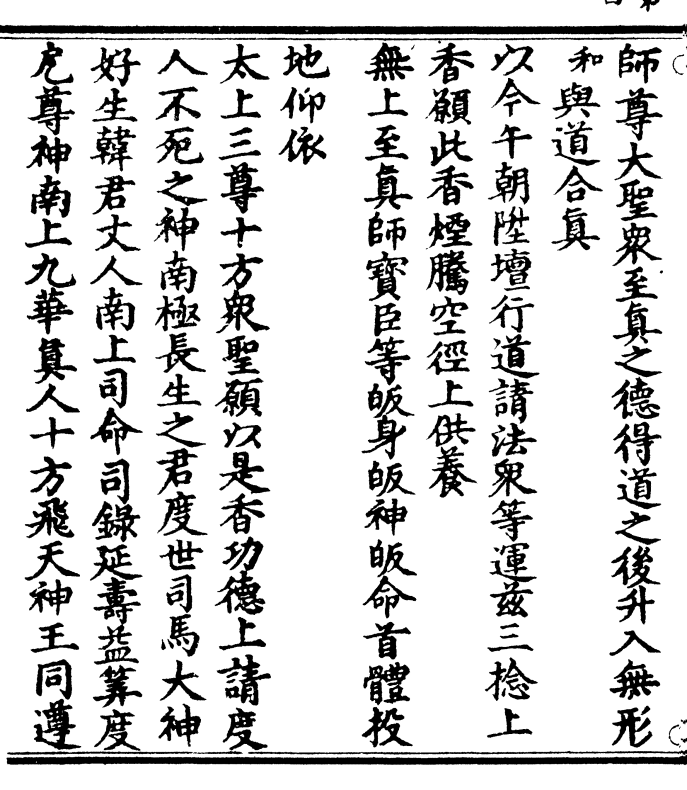 師尊大聖衆至眞之德得道之後升入無形
和與道合眞
以今午朝陞壇行道請法衆等運兹三捻上
香願此香煙騰空徑上供養
無上至眞師寶臣等皈身皈神皈命首體投
地仰依
太上三尊十方衆聖願以是香功德上請度
人不死之神南極長生之君度世司馬大神
好生韓君丈人南上司命司錄延壽益筭度
厄尊神南上九華眞人十方飛天神王同遵